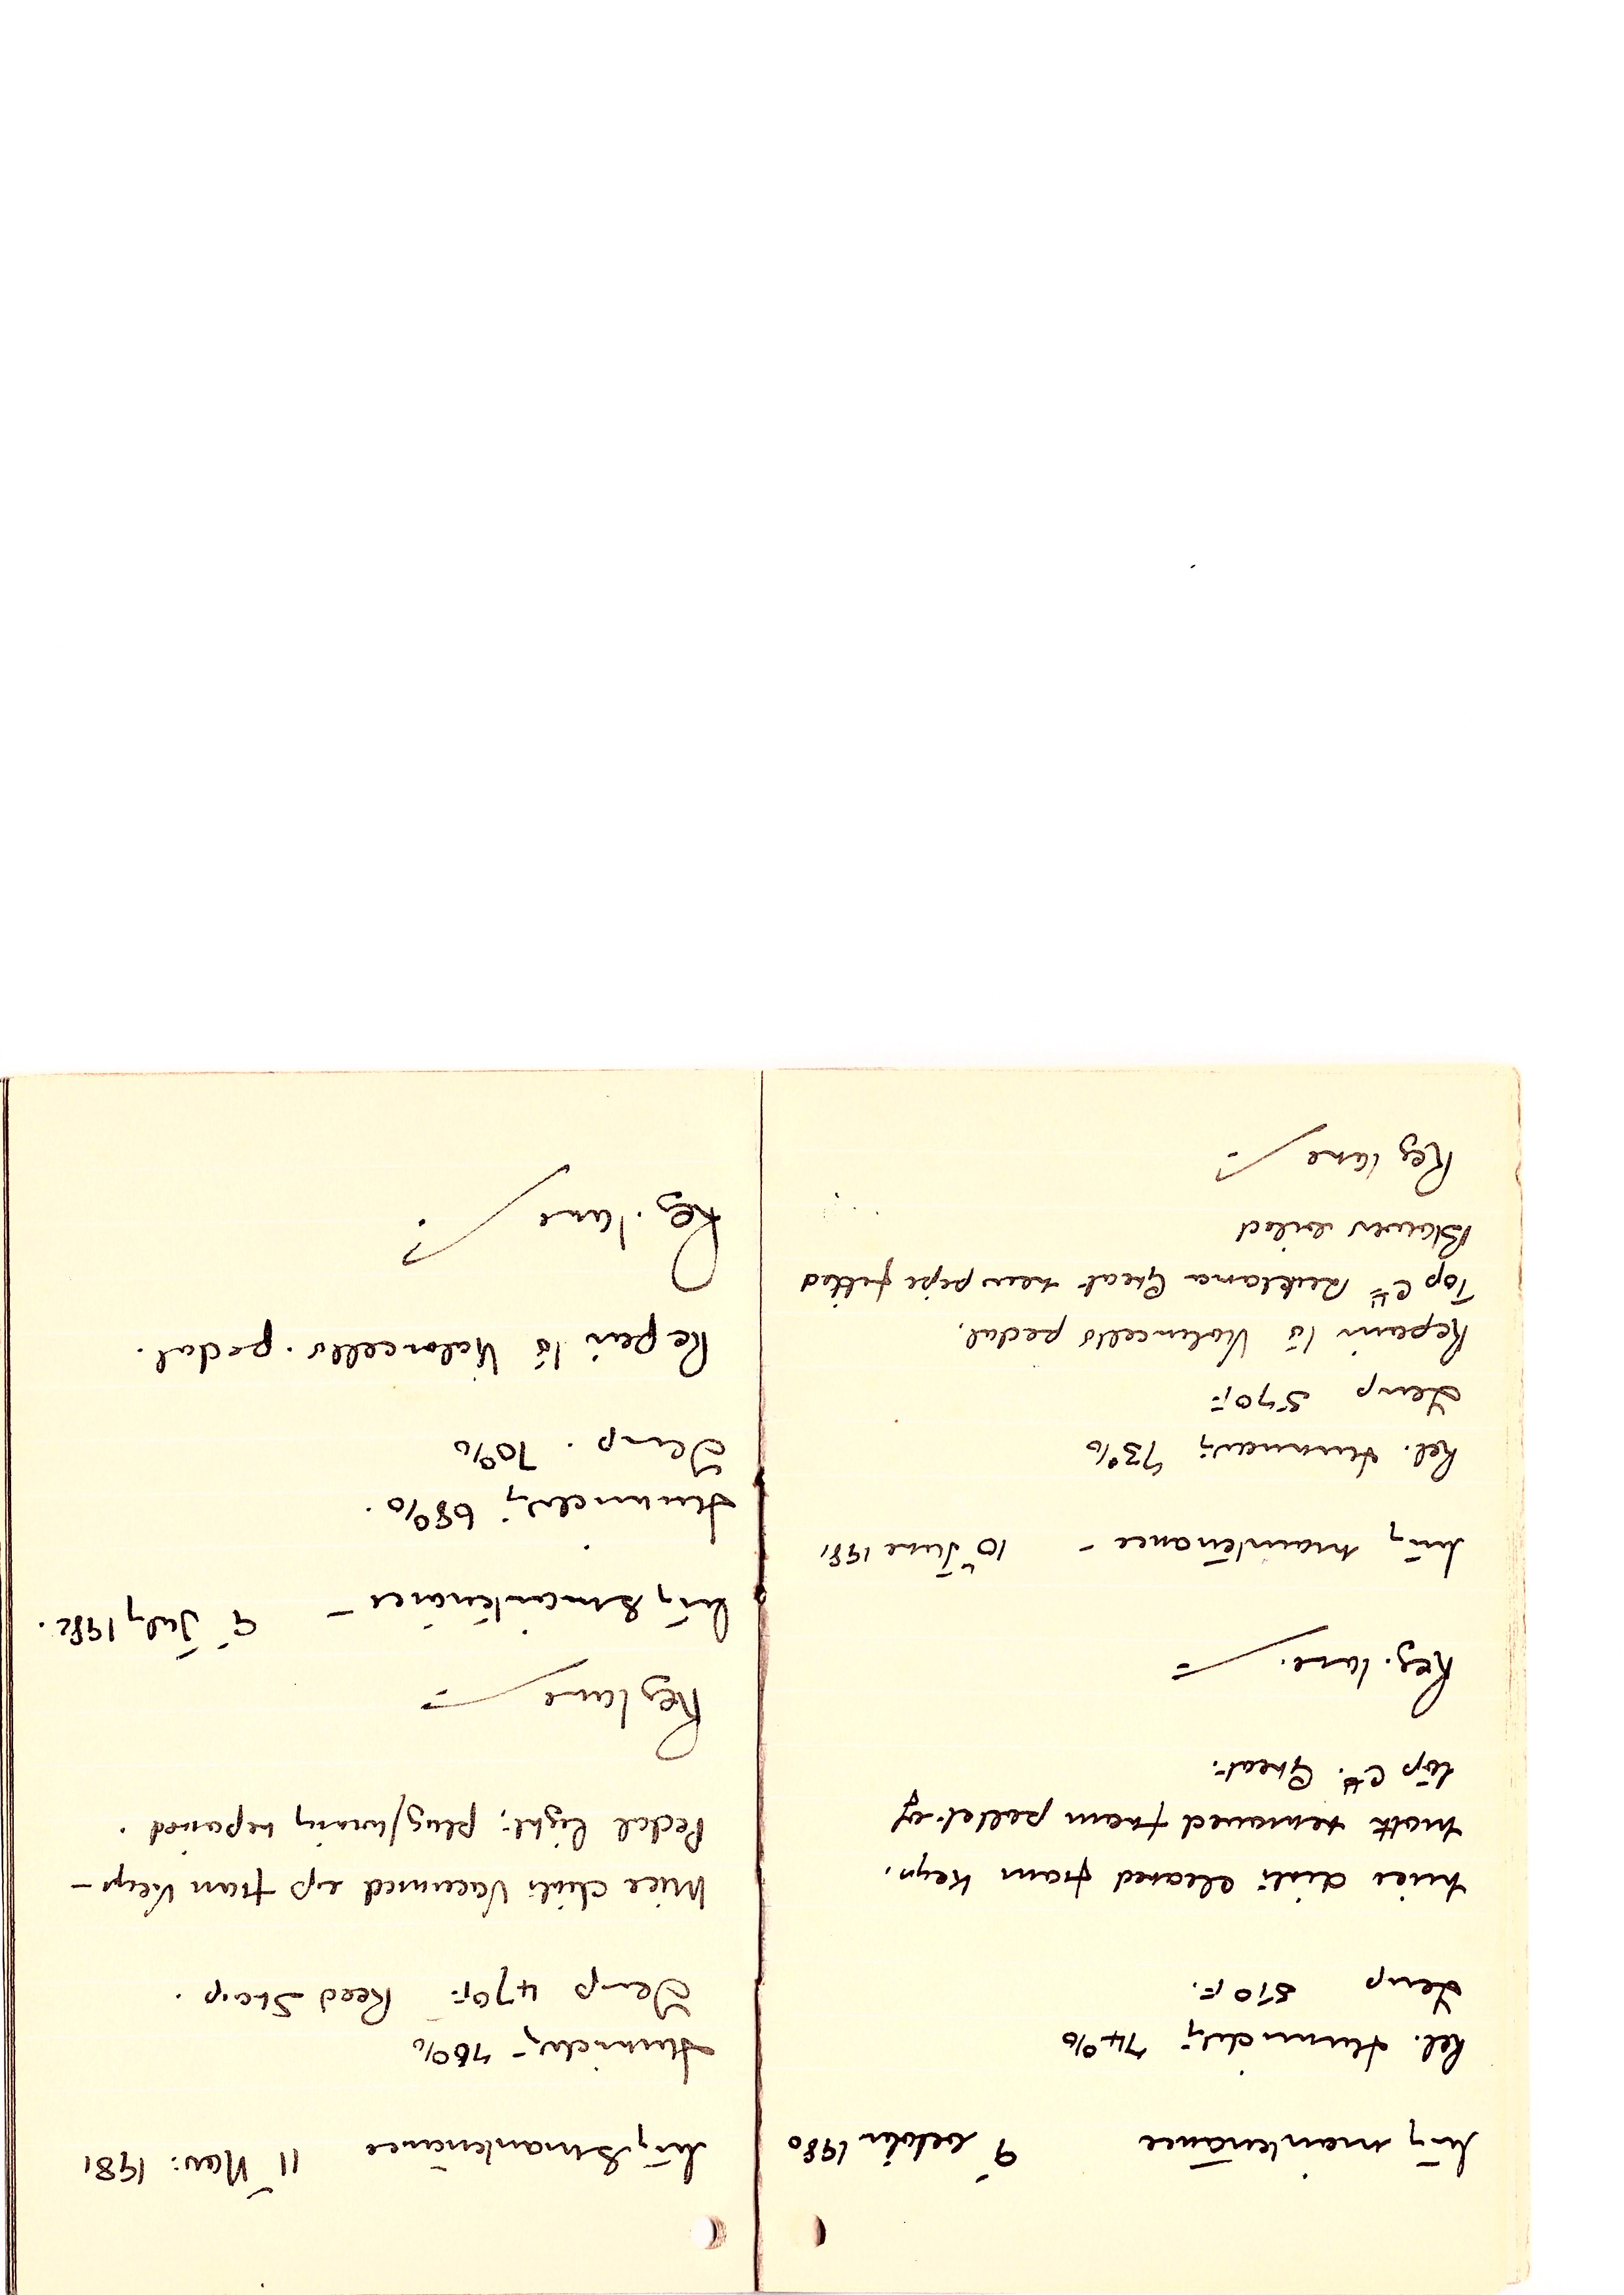 Tuning maintenance 9 October 1980
Rel. Humidity 74%
Temp 51°F.
Mice dirt cleared from Keys.
Moth removed from pallet of
top C# Great.
Reg. Lane.
Tuning maintenance - 10th June 1981
Rel. Humidity 73%
Temp 57°F
Repairs to Violoncello pedal.
Top C# Great new pipe fitted
Blower oiled
Reg Lane
Tuning & maintenance 11th Nov: 1981
Humidity - 76%
Temp 47°F Reed Stop.
Mice dirt Vacuumed up from Keys -
Pedal light; plug/wiring repaired.
Reg Lane
Tuning & maintenance - 9th July 1982.
Humidity 68%.
Temp. 70%
Repair to Violoncello. pedal.
Reg. Lane